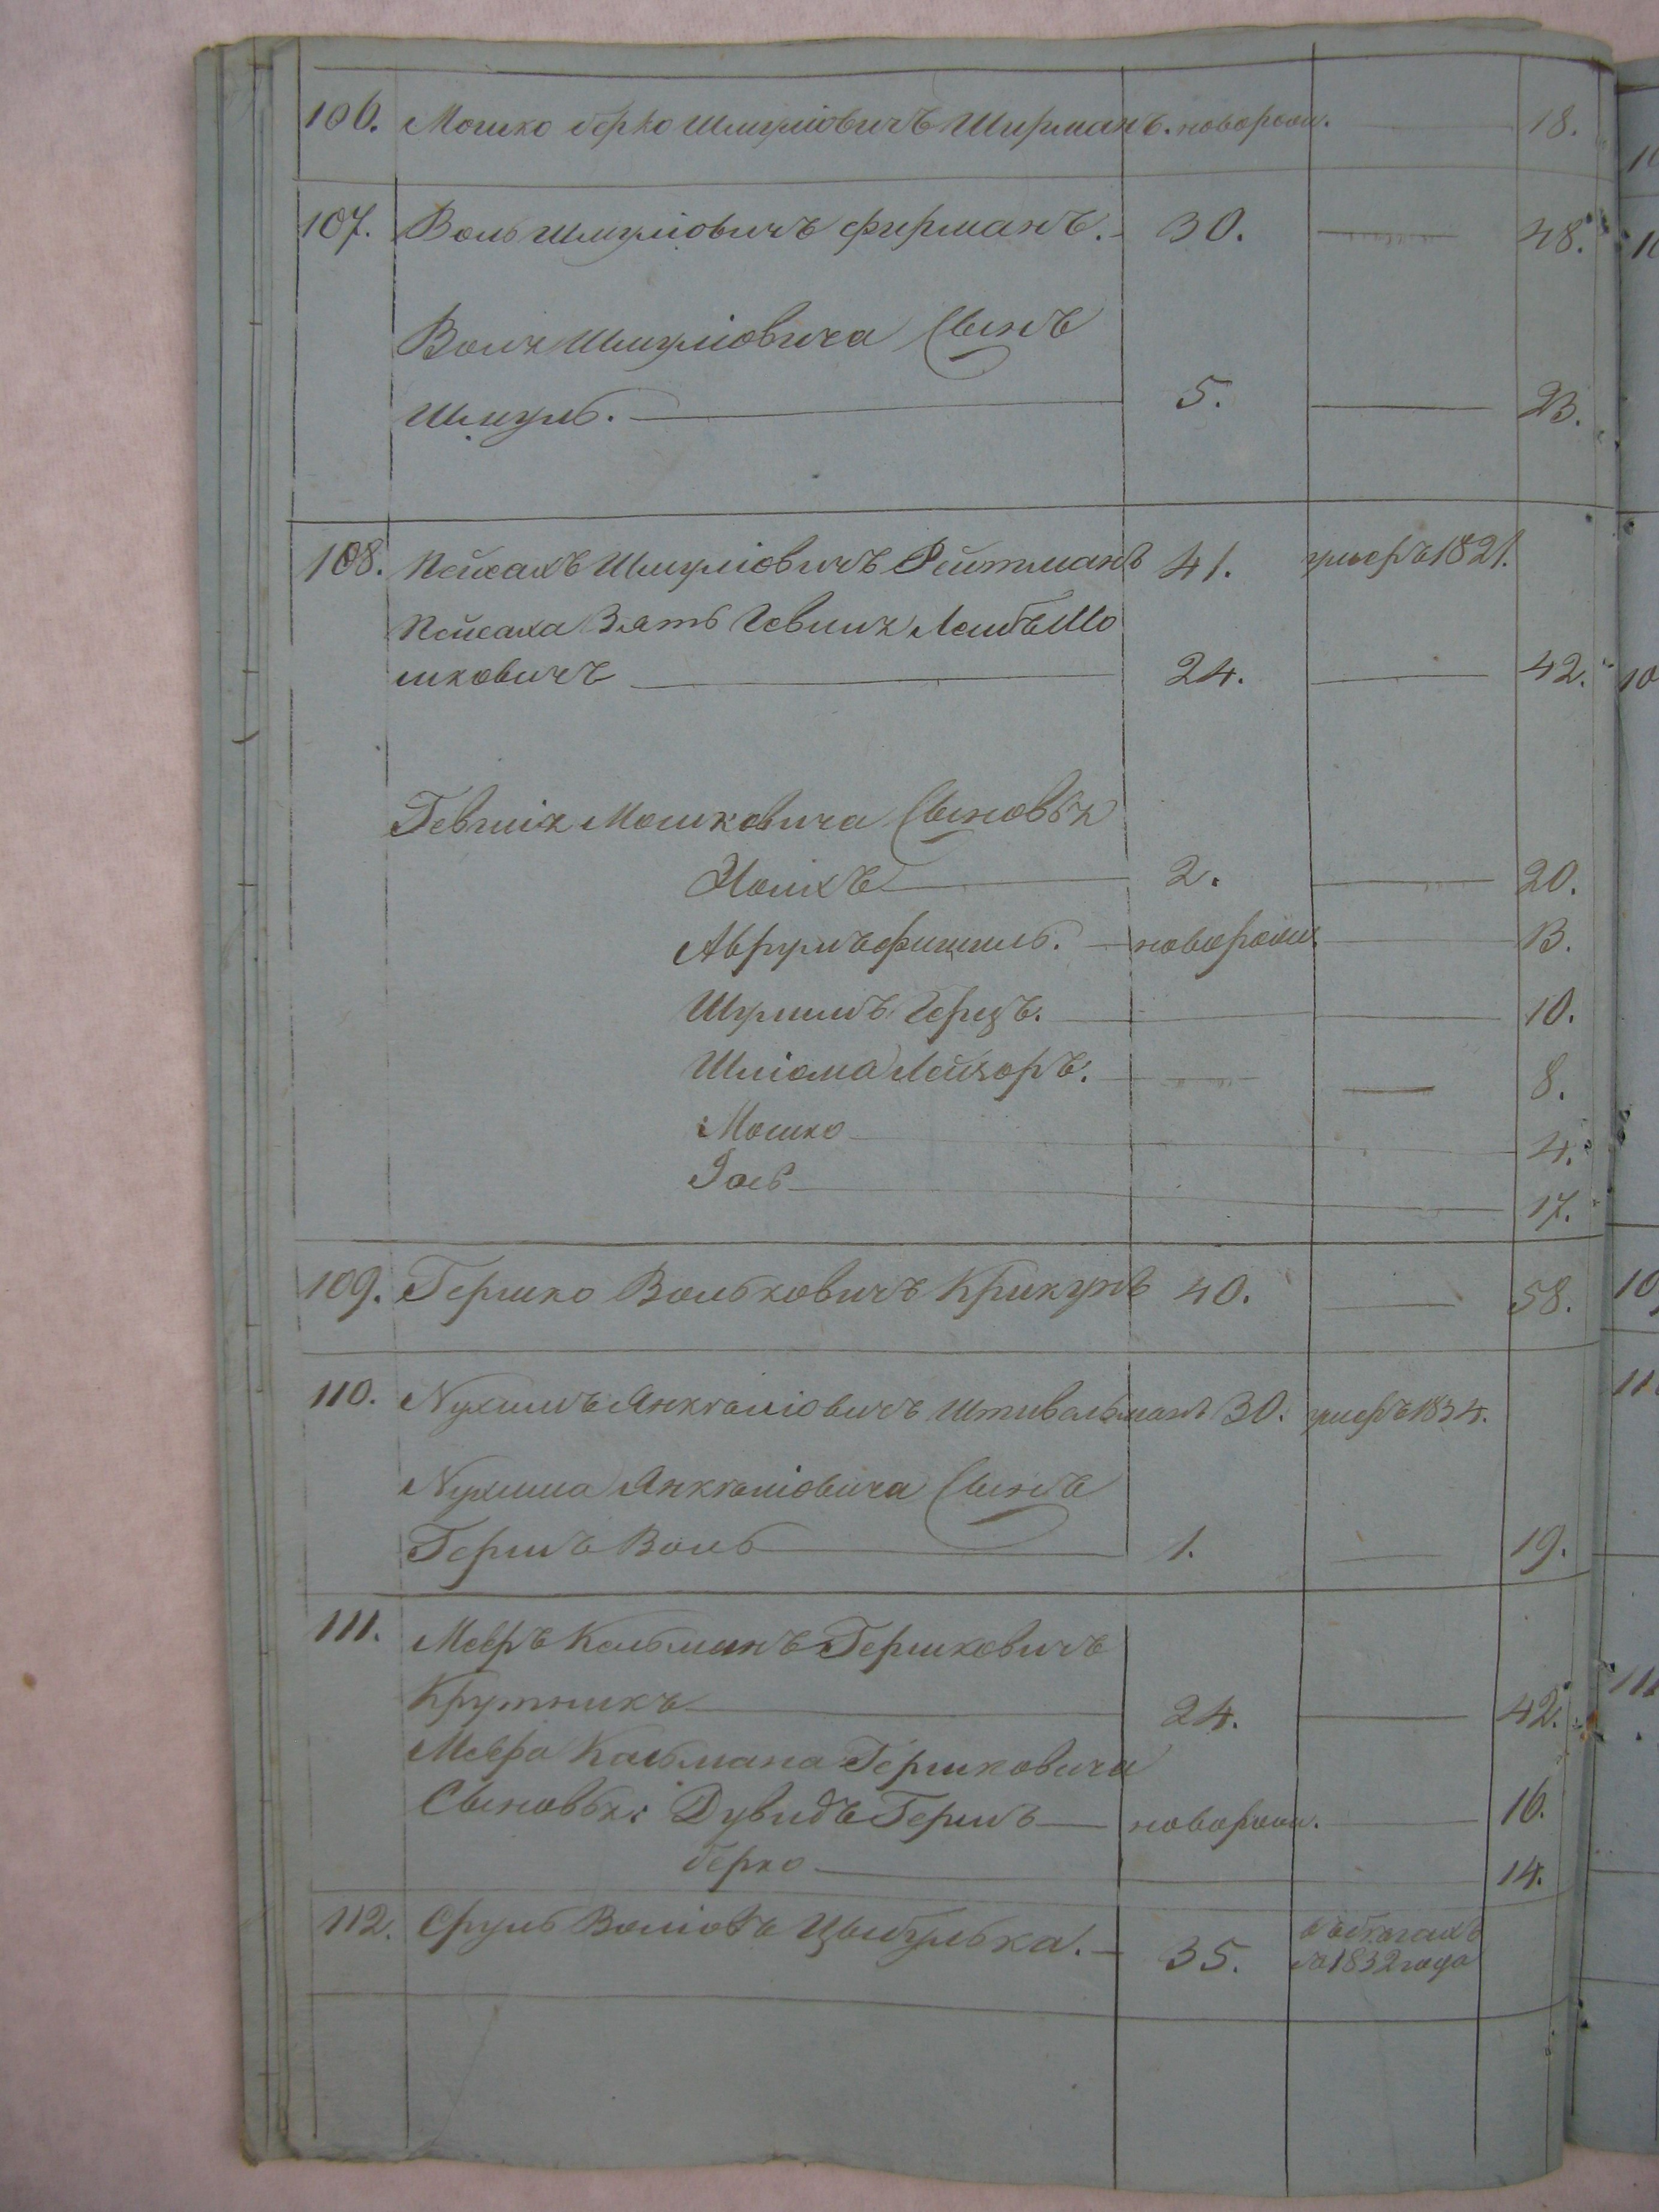 106. Мошко берко Шмуліовичъ Ширманъ. новорож. 18.
107. Воль Шмуліовичъ фирманъ. 30. 48.
Воля Шмуліовича Сынъ
Шмуль. 5. 23.
108. Пейсахъ Шмуліовичъ Рейтманъ 41. умеръ 1821.
Пейсаха Зять Гевшия Лейбъ Мо
шковичъ 24. 42.
Гевшія Мошковича Сыновья
Хаимъ 2. 20.
Аврумъ фишель. новорож. 13.
Шулимъ Герцъ. 10.
Шліома Лейзоръ. 8.
Мошко 4.
Іось 17.
109. Гершко Вольковичъ Крикунъ 40. 58.
110. Нухимъ Янкѣліовичъ Штивельманъ 30. умеръ 1834.
Нухима Янкѣліовича Сынъ
Гершъ Воль 1. 19.
111. Мееръ Кальманъ Гершковичъ
Крутникъ 24. 42.
Меера Кальмана Гершковича
Сыновья: Дувидъ Гершъ новорож. 16.
берко 14.
112. Сруль Воліовъ Цыбулька. 35. въ бѣгахъ
съ 1832 года